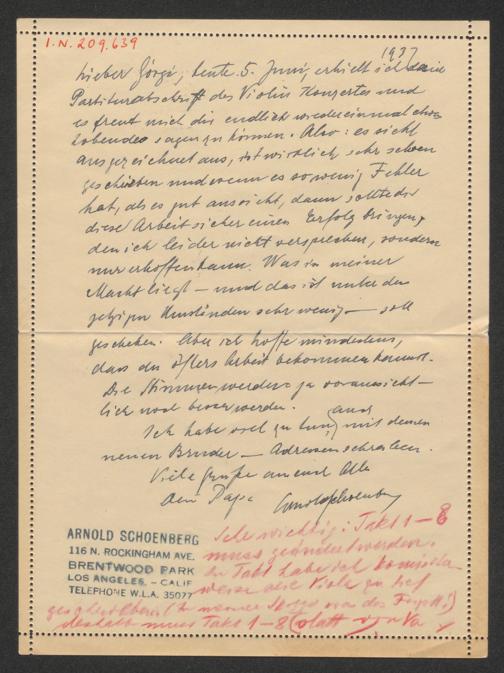 I.N. 209.639
1937
Lieber Görgi, heute 5. Juni, erhielt ich deine
Partiturabschrift des Violin Konzertes und
es freut mich dir endlich wieder einmal etwas
lobendes sagen zu können. Also: es sieht
ausgezeichnet aus, ist wirklich sehr schoen
geschrieben und wenn es so wenig Fehler
hat, als es gut aussieht, dann sollte dir
diese Arbeit sicher einen Erfolg bringen,
den ich leider nicht versprechen, sondern
nur erhoffen kann. Was in meiner
Macht liegt – und das ist unter den
jetzigen Umständen sehr wenig – soll
geschehen. Aber ich hoffe mindestens,
dass du öfters Arbeit bekommen kannst.
Die Stimmen werden ja voraussicht-
lich noch besser werden.
Ich habe viel zu tun, auch mit deinem
neuen Bruder – Adressen schreiben.
Viele Grüße an euch Alle
Dein Papa Arnold Schoenberg
ARNOLD SCHOENBERG
116 N. ROCKINGHAM AVE.
BRENTWOOD PARK
LOS ANGELES, - CALIF
TELEPHONE W.L.A. 35077
Sehr wichtig: Takt 1–8
muss geändert werden.
Takt habe ich komischer
weise die Viola zu tief
geschrieben
deshalb muss Takt 1–8 statt Va